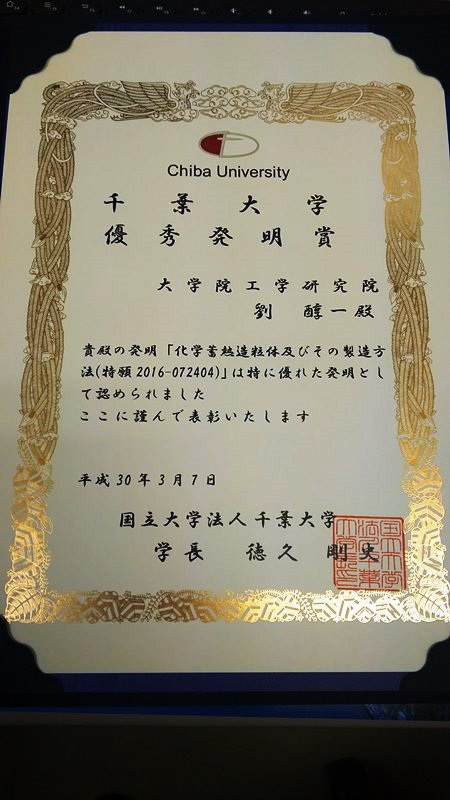 Chiba University
千葉大学
優秀発明賞
大学院工学研究院
劉 醇一殿
貴殿の発明「化学蓄熱造粒体及びその製造方
法(特願2016-072404)」は特に優れた発明とし
て認められました
ここに謹んで表彰いたします
平成30年3月7日
国立大学法人千葉大学
学長 徳久剛史